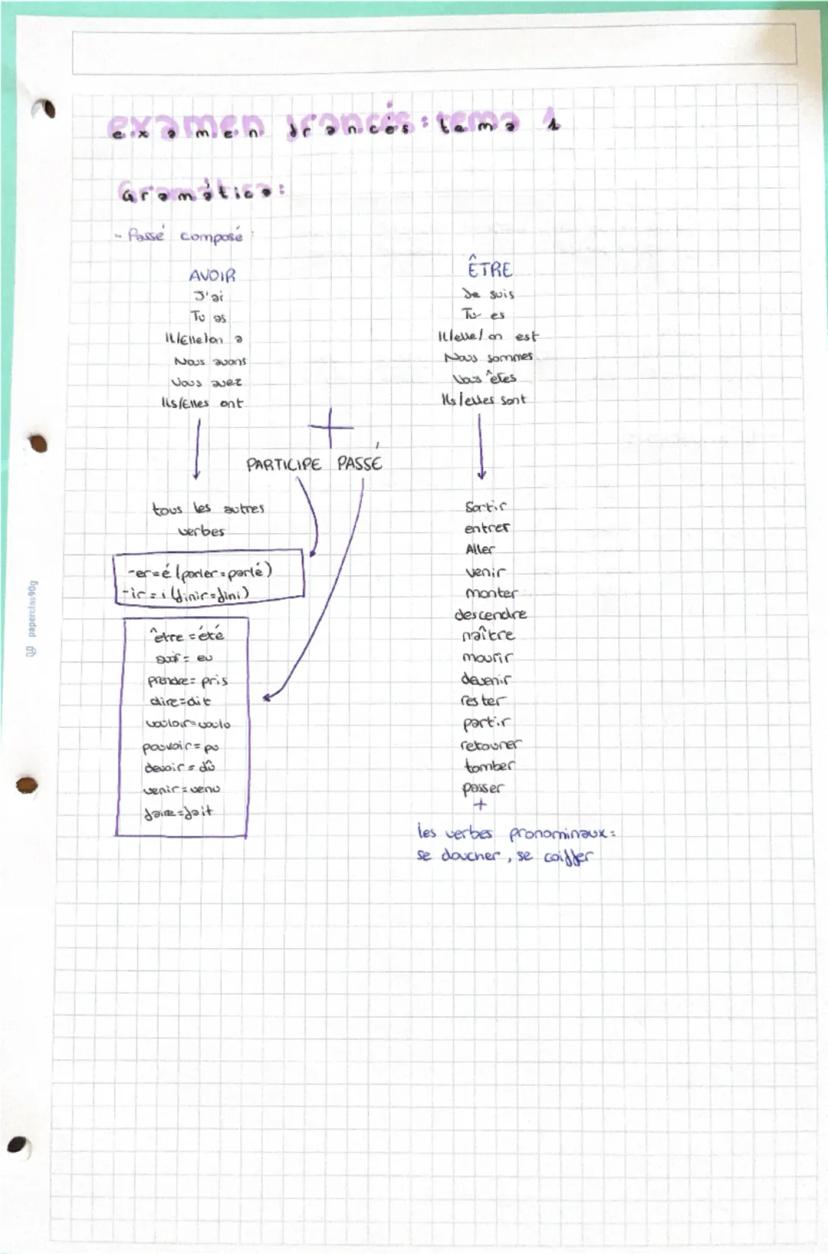 examen francés: tema 1
Gramática:
- Passé composé:
AVOIR
J'ai
Tu as
Il/Elle/on a
Nous avons
Vous avez
Ils/Elles ont
ÊTRE
Je suis
Tu es
Il/elle/on est
Nous sommes
Vous êtes
Ils/elles sont
+
PARTICIPE PASSÉ
tous les autres
verbes
-er=é (parler=parlé)
-ir=i (finir=fini)
être=été
avoir=eu
prendre=pris
dire=dit
vouloir=voulu
pouvoir=pu
devoir=dû
venir=venu
faire=fait
Sortir
entrer
Aller
venir
monter
descendre
naître
mourir
devenir
rester
partir
retouner
tomber
passer
+
les verbes pronominaux:
se doucher, se coiffer
paperclas 90g